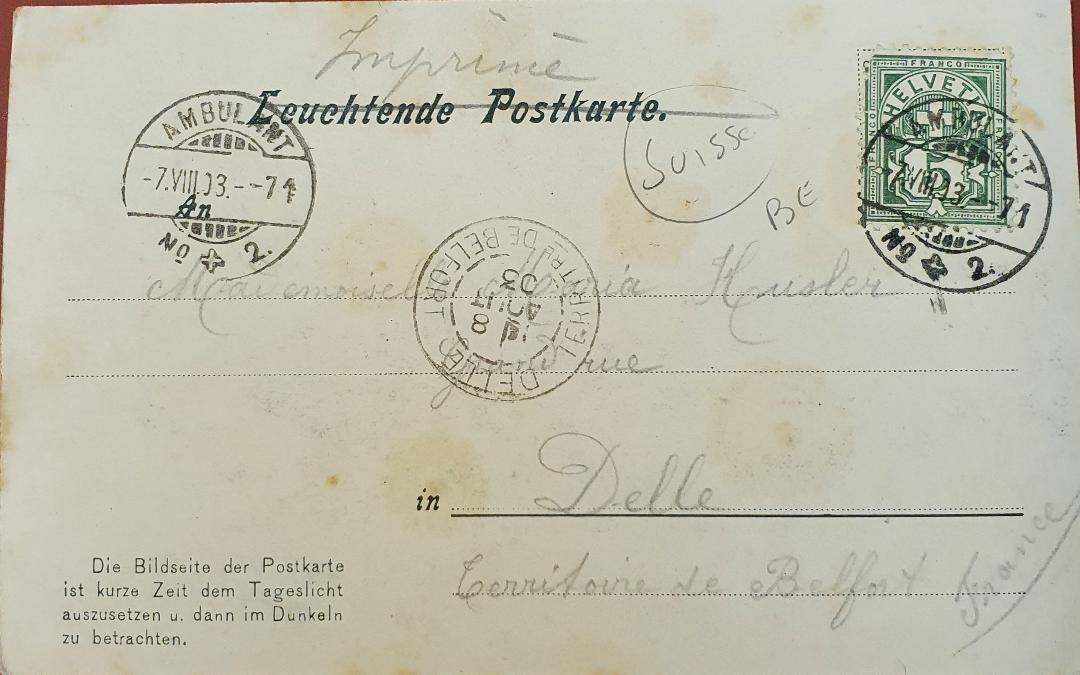 Imprimé
Leuchtende Postkarte.
Suisse
BE
FRANCO
HELVETIA
FRANCO
5
AMBULANT
-7.VIII.03.--71
No 2.
AMBULANT
-7.VIII.03.--71
No 2.
An
DELLE
TERRIT^RE DE BELFORT
8
03
Mademoiselle Maria Husler
Grand rue
in Delle
Territoire de Belfort
France
Die Bildseite der Postkarte
ist kurze Zeit dem Tageslicht
auszusetzen u. dann im Dunkeln
zu betrachten.